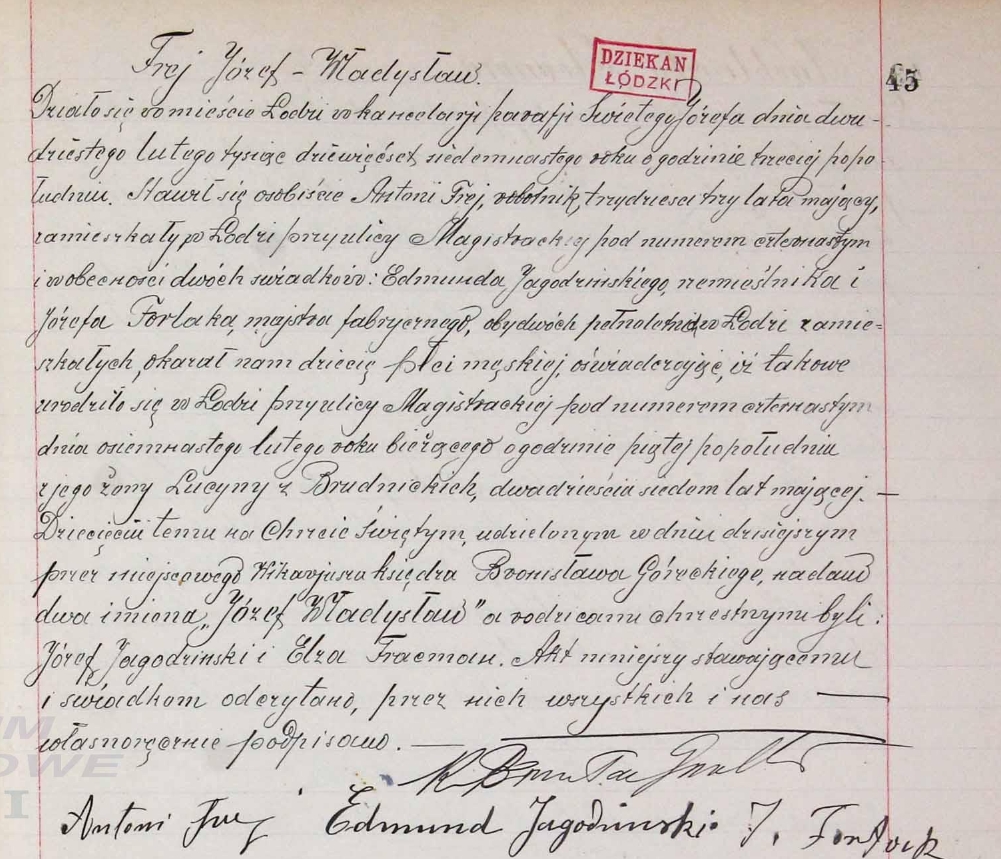 Frej Józef - Władysław.
DZIEKAN
ŁÓDZKI
45
Działo się w mieście Łodzi w kancelaryi parafji Świętego Józefa dnia dwu-
dziestego lutego tysiąc dziewięćset siedemnastego roku o godzinie trzeciej popo-
łudniu. Stawił się osobiście Antoni Frej, robotnik, trzydzieści trzy lata mający,
zamieszkały w Łodzi przy ulicy Magistrackiej pod numerem czternastym
i w obecności dwóch świadków: Edmunda Jagodzińskiego, rzemieślnika i
Józefa Forlaka, majstra fabrycznego, obydwóch pełnoletnich w Łodzi zamie=
szkałych, okazał nam dziecię płci męskiej, oświadczając, iż takowe
urodziło się w Łodzi przy ulicy Magistrackiej pod numerem czternastym
dnia osiemnastego lutego roku bieżącego o godzinie piątej popołudniu
z jego żony Lucyny z Brudnickich, dwadzieścia siedem lat mającej. —
Dziecięciu temu na Chrzcie Świętym, udzielonym w dniu dzisiejszym
przez miejscowego Wikarjusza księdza Bronisława Góreckiego, nadano
dwa imiona „Józef Władysław" a rodzicami chrzestnymi byli:
Józef Jagodziński i Elza Fracman. Akt niniejszy stawającemu
i świadkom odczytano, przez nich wszystkich i nas —
własnoręcznie podpisano. —
Antoni Frej Edmund Jagodzinski J.